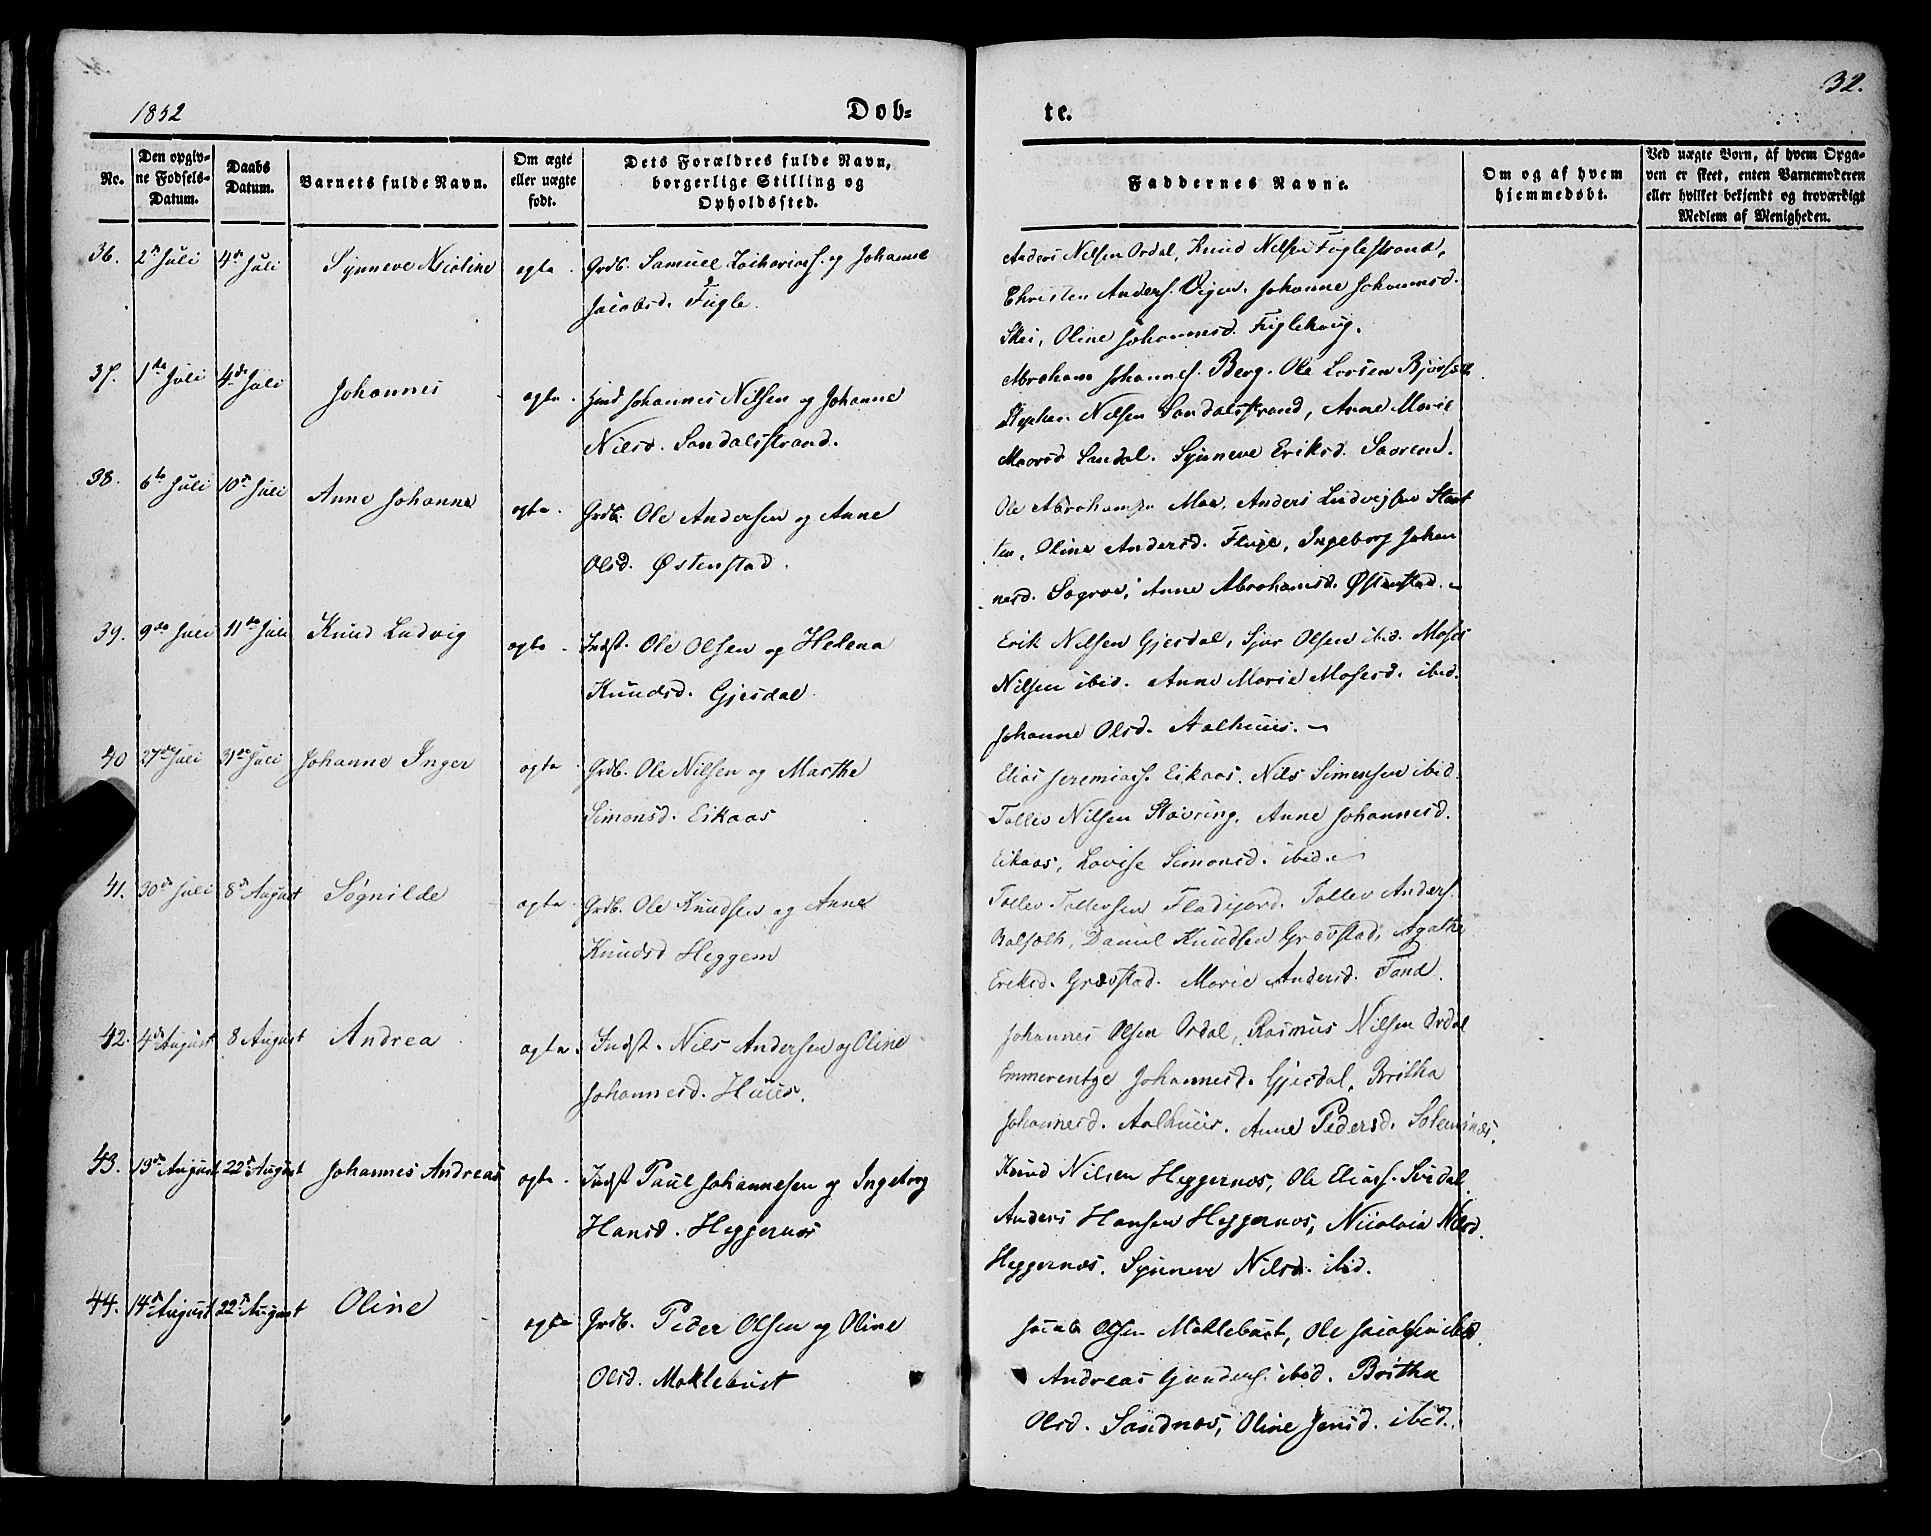 32.
1852
Døb-
te.
No.
Den opgiv-
ne Fødsels-
Datum.
Daabs
Datum.
Barnets fulde Navn.
Om ægte
eller uægte
født.
Dets Forældres fulde Navn,
borgerlige Stilling og
Opholdssted.
Faddernes Navne.
Om og af hvem
hjemmedøbt.
Ved uægte Børn, af hvem Opga-
ven er skeet, enten Barnemoderen
eller hvilket bekjendt og troværdigt
Medlem af Menigheden.
36.
2de Juli
4de Juli
Synneve Nicoline
ægte
Grdb. Samuel Zachariass. og Johanne
Jacobsd. Fugle.
Anders Nilsen Ordal, Knud Nilsen Fuglestrand,
Christen Anders. Johanne Johannesd.
Skei, Oline Johannesd. Fuglehaug.
37.
1de Juli
4de Juli
Johannes
ægte
Johannes Nilsen og Johanne
Nilsd. Sandalsstrand.
Abraham Johannes. Berg. Ole Larsen
Stephen Nilsen Sandalsstrand, Anne Marie
Sandal. Synneve Eriksd.
38.
6te Juli
10de Juli
Anne Johanne
ægte.
Grdb. Ole Andersen og Anne
Olsd. Østenstad.
Ole Abrahamsen Moe, Anders Ludvigsen
Oline Andersd. Fluge, Ingeborg Johan
nesd. Søgrov, Anne Abrahamsd. Østenstad.
39.
9de Juli
11de Juli
Knud Ludvig
ægte
Indst. Ole Olsen og Helena
Knudsd. Gjesdal.
Erik Nilsen Gjesdal, Sjur Olsen ibid. Moses
Nilsen ibid. Anne Marie Mosesd. ibid.
Johanne Olsd. Aalhuus.
40
27de Juli
31de Juli
Johanne Inger
ægte
Grdb. Ole Nilsen og Marthe
Simonsd. Eikaas
Elias Jeremiass. Eikaas. Nils Simensen ibid.
Tollev Nilsen Støvring. Anne Johannesd.
Eikaas, Lovise Simonsd. ibid.
41.
30de Juli
8de August
Søgnilde
ægte
Grdb. Ole Knudsen og Anne
Knudsd Heggem
Tollev Tollevsen Fladjord. Tollev Anders.
Daniel Knudsen Grøvstad, Agathe
Eriksd. Grøvstad. Marie Andersd. Tand.
42.
4de August
8 August
Andrea
ægte.
Indst. Nils Andersen og Oline
Johannesd. Huus.
Johannes Olsen Ordal, Rasmus Nilsen Ordal
Emmerentze Johannesd. Gjesdal, Britha
Johannesd. Aalhuus. Anne Pedersd. Solemnæs.
43.
13de August
22de August
Johannes Andreas
ægte.
Indst Paul Johannesen og Ingeborg
Hansd. Heggernæs
Knud Nilsen Heggernæs, Ole Eliass.
Anders Hansen Heggernæs, Nicolvia Nilsd.
Heggernæs. Synneve Nilsd. ibid.
44.
14de August
22de August
Oline
ægte
Grdb. Peder Olsen og Oline
Olsd. Moklebust
Jacob Olsen Moklebust, Ole Jacobsen ibid.
Andreas Gunders. ibid. Britha
Olsd. Sandnæs, Oline Jensd. ibid.